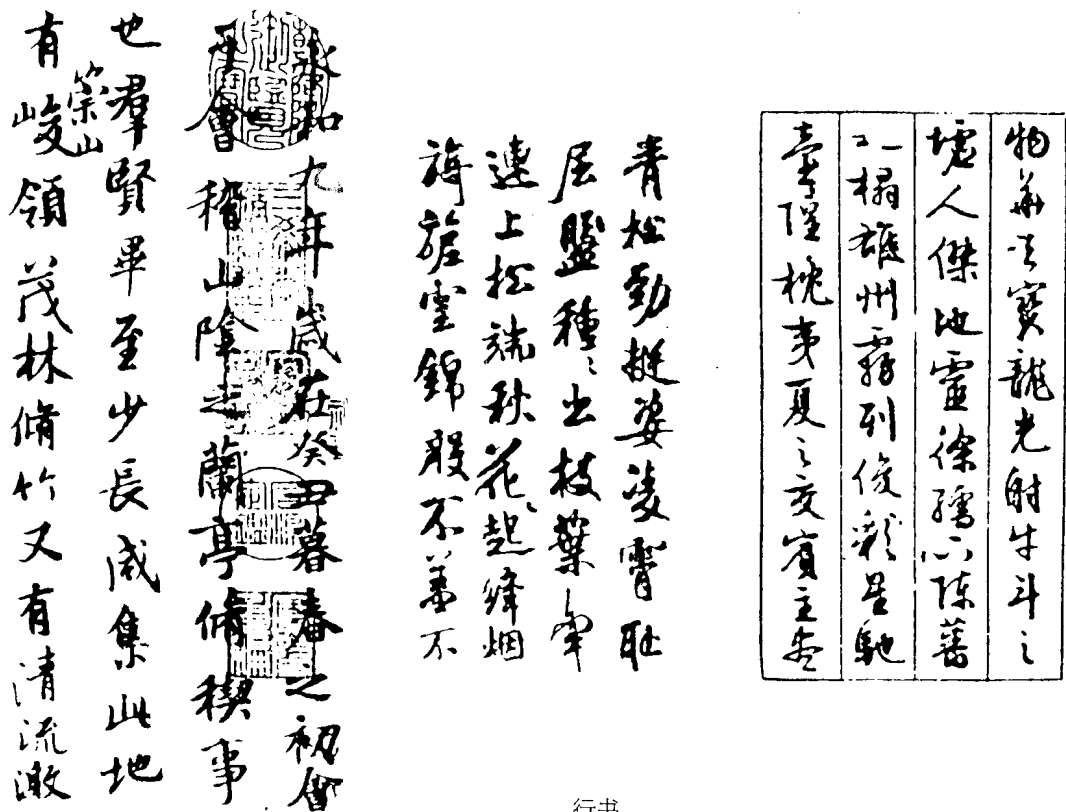 物華天寶龍光射牛斗之
墟人傑地靈徐孺下陳蕃
之榻雄州霧列俊彩星馳
臺隍枕夷夏之交賓主盡
青松勁挺姿凌霄恥
屈盤種〻出枝葉牽
連上松端秋花起絳烟
旖旎雲錦殷不羞不
永和九年歲在癸丑暮春之初會
于會稽山陰之蘭亭脩稧事
也羣賢畢至少長咸集此地
有崇山峻領茂林脩竹又有清流激
行书